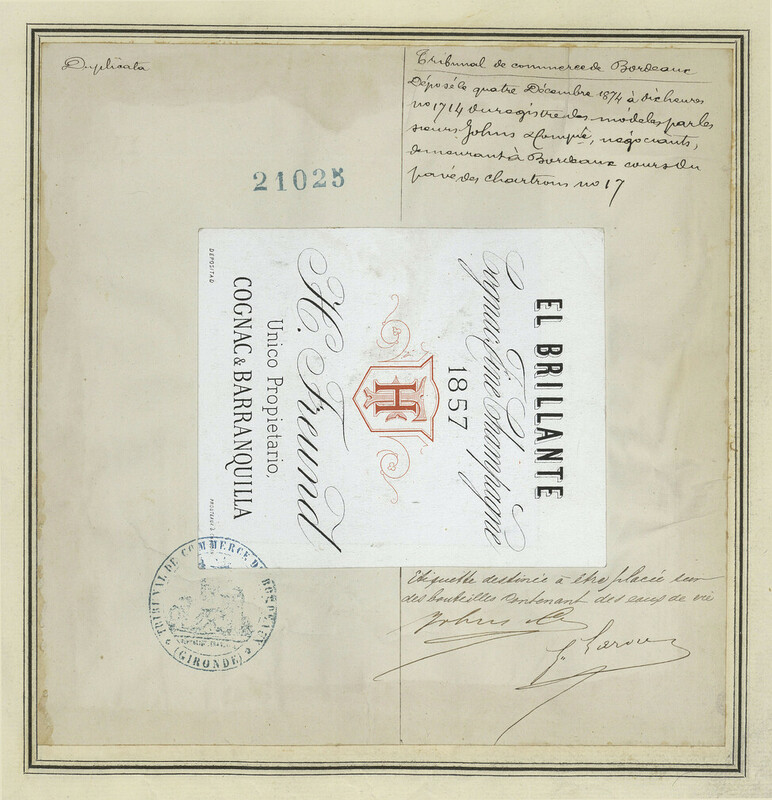 Duplicata
Tribunal de commerce de Bordeaux
Déposé le quatre Décembre 1874 à dix heures
no 1714 du registre des modèles par les
sieurs Johns & Compie, négociants,
demeurant à Bordeaux cours du
pavé des Chartrons no 17
21025
EL BRILLANTE
Cognac Fine Champagne
1857
H F
H. Freund
Unico Propietario,
COGNAC & BARRANQUILLA
DEPOSITADO
TRIBUNAL DE COMMERCE DE BORDEAUX
(GIRONDE)
Etiquette destinée à être placée sur
des bouteilles contenant des eaux de vie
Johns & Co